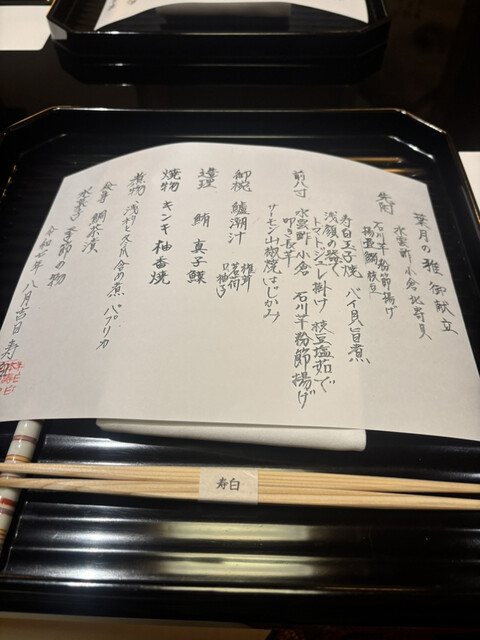 葉月の雅 御献立
先附 水雲酢 小倉 北寄貝
石川芋粉節揚げ
揚無鯛 枝豆
寿白玉子焼 バイ貝旨煮
浅領の啓て
トマトジュレ掛け 枝豆塩茹で
前八寸 水雲酢 小倉 石川芋粉節揚げ
叩き長芋
サーモン山椒焼 はじかみ
御椀 鱸潮汁 椎茸
茗荷
口柚子
造里 鮪 真子鰈
焼物 キンキ柚香焼
煮物 浅利と冬瓜含め煮 パプリカ
食事 鯛茶漬
水菓子 季節の物
令和七年 八月吉日 寿白
寿白